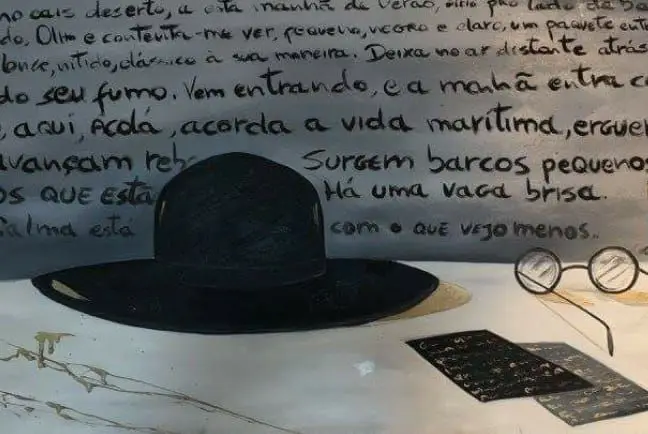 no cais deserto, a esta manhã de Verão, olho pro lado da ba
do, Olho e contenta-me ver, pequeno, negro e claro, um paquete
nítido, clássico à sua maneira. Deixa no ar distante atrás
do seu fumo. Vem entrando, e a manhã entra co
, aqui, Acolá, acorda a vida marítima, erguem
avançam reb Surgem barcos pequenos
os que está Há uma vaga brisa.
alma está com o que vejo menos.